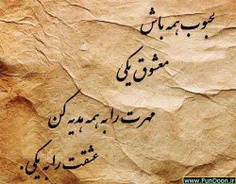 محبوب همه باش
معشوق یکی
مهرت را به همه هدیه کن
عشقت را به یکی.
www.FunDoon.ir